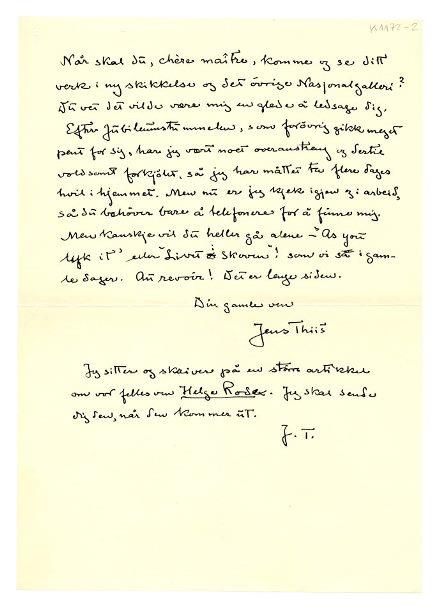 K1172-2
Når skal du, chère maître, komme og se ditt
verk i ny skikkelse og det övrige Nasjonalgalleri?
Du vet det vilde være mig en glede å ledsage dig.
Efter Jubileumstummelen, som forövrig gikk meget
pent for sig, har jeg vært noet overanstrengt og dertil
voldsomt forkjölet, så jeg har måttet ta flere dages
hvil i hjemmet. Men nu er jeg kjekk igjen og i arbeid,
så du behöver bare å telefonere for å finne mig.
Men kanskje vil du heller gå alene – "As you
lyk it" eller "Livet i Skoven"! som vi i gam-
le dager. Au revoir! Det er lenge siden.
Din gamle ven
Jens Thiis
Jeg sitter og skriver på en större artikkel
om vor felles ven Helge Rode. Jeg skal sende
dig den, når den kommer ut.
J. T.